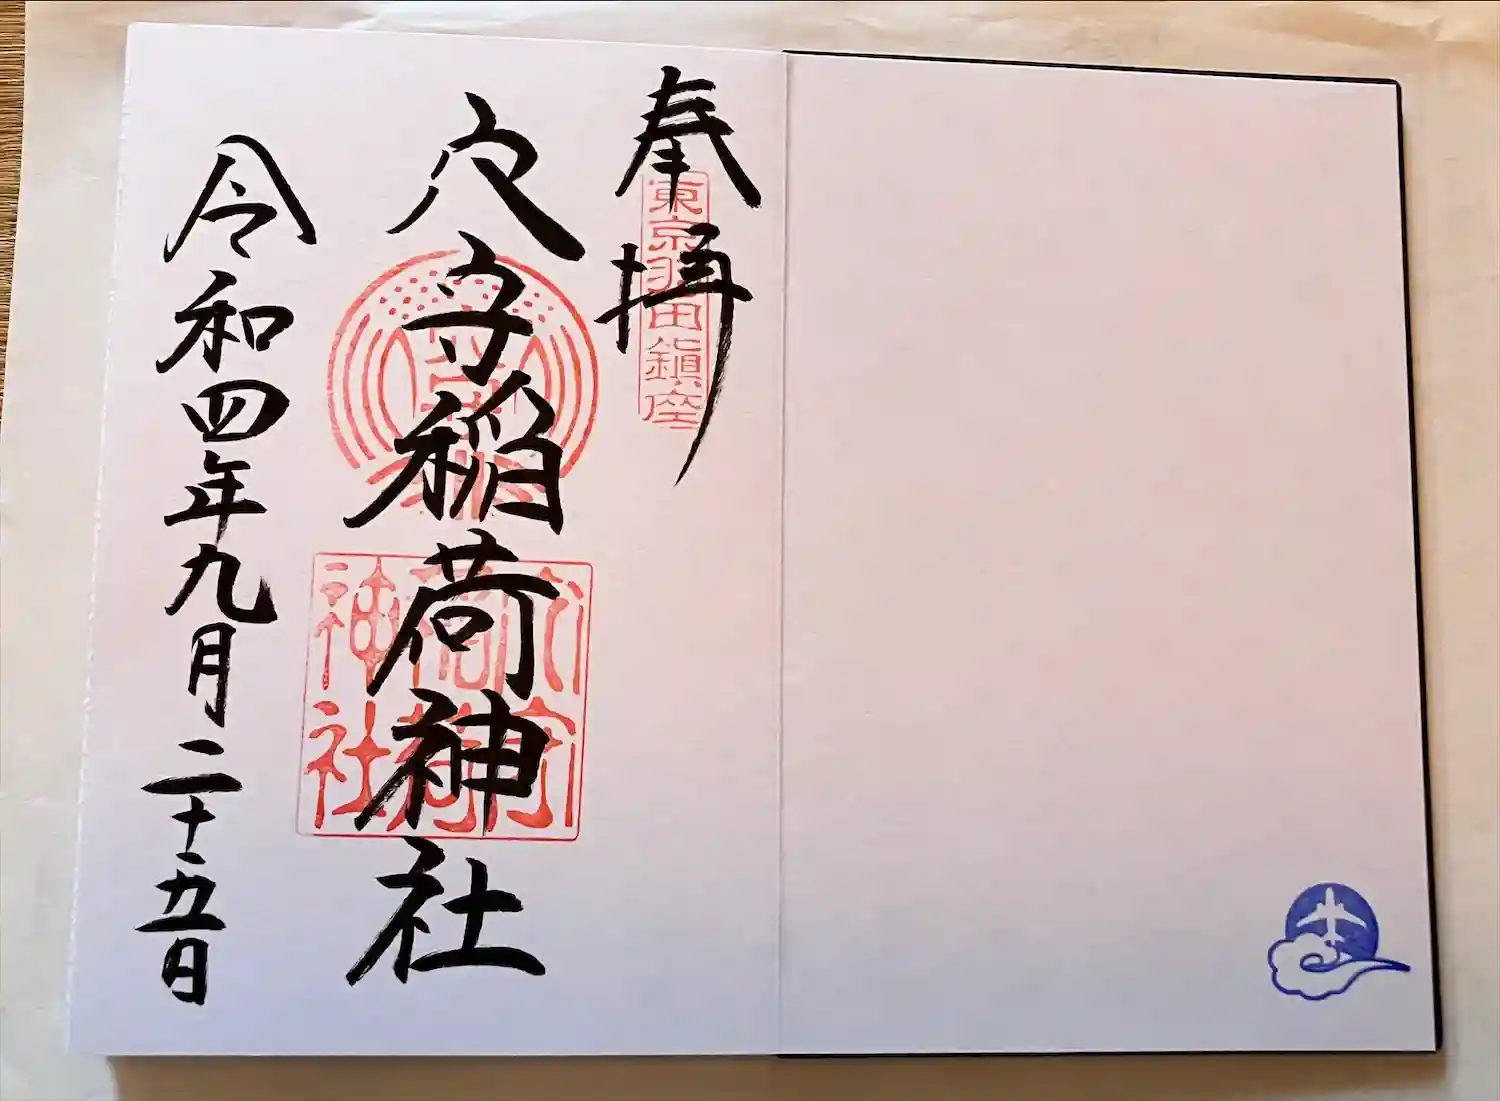 奉拝
東京羽田鎭座
穴守稲荷神社
穴守
稲荷
神社
令和四年九月二十五日